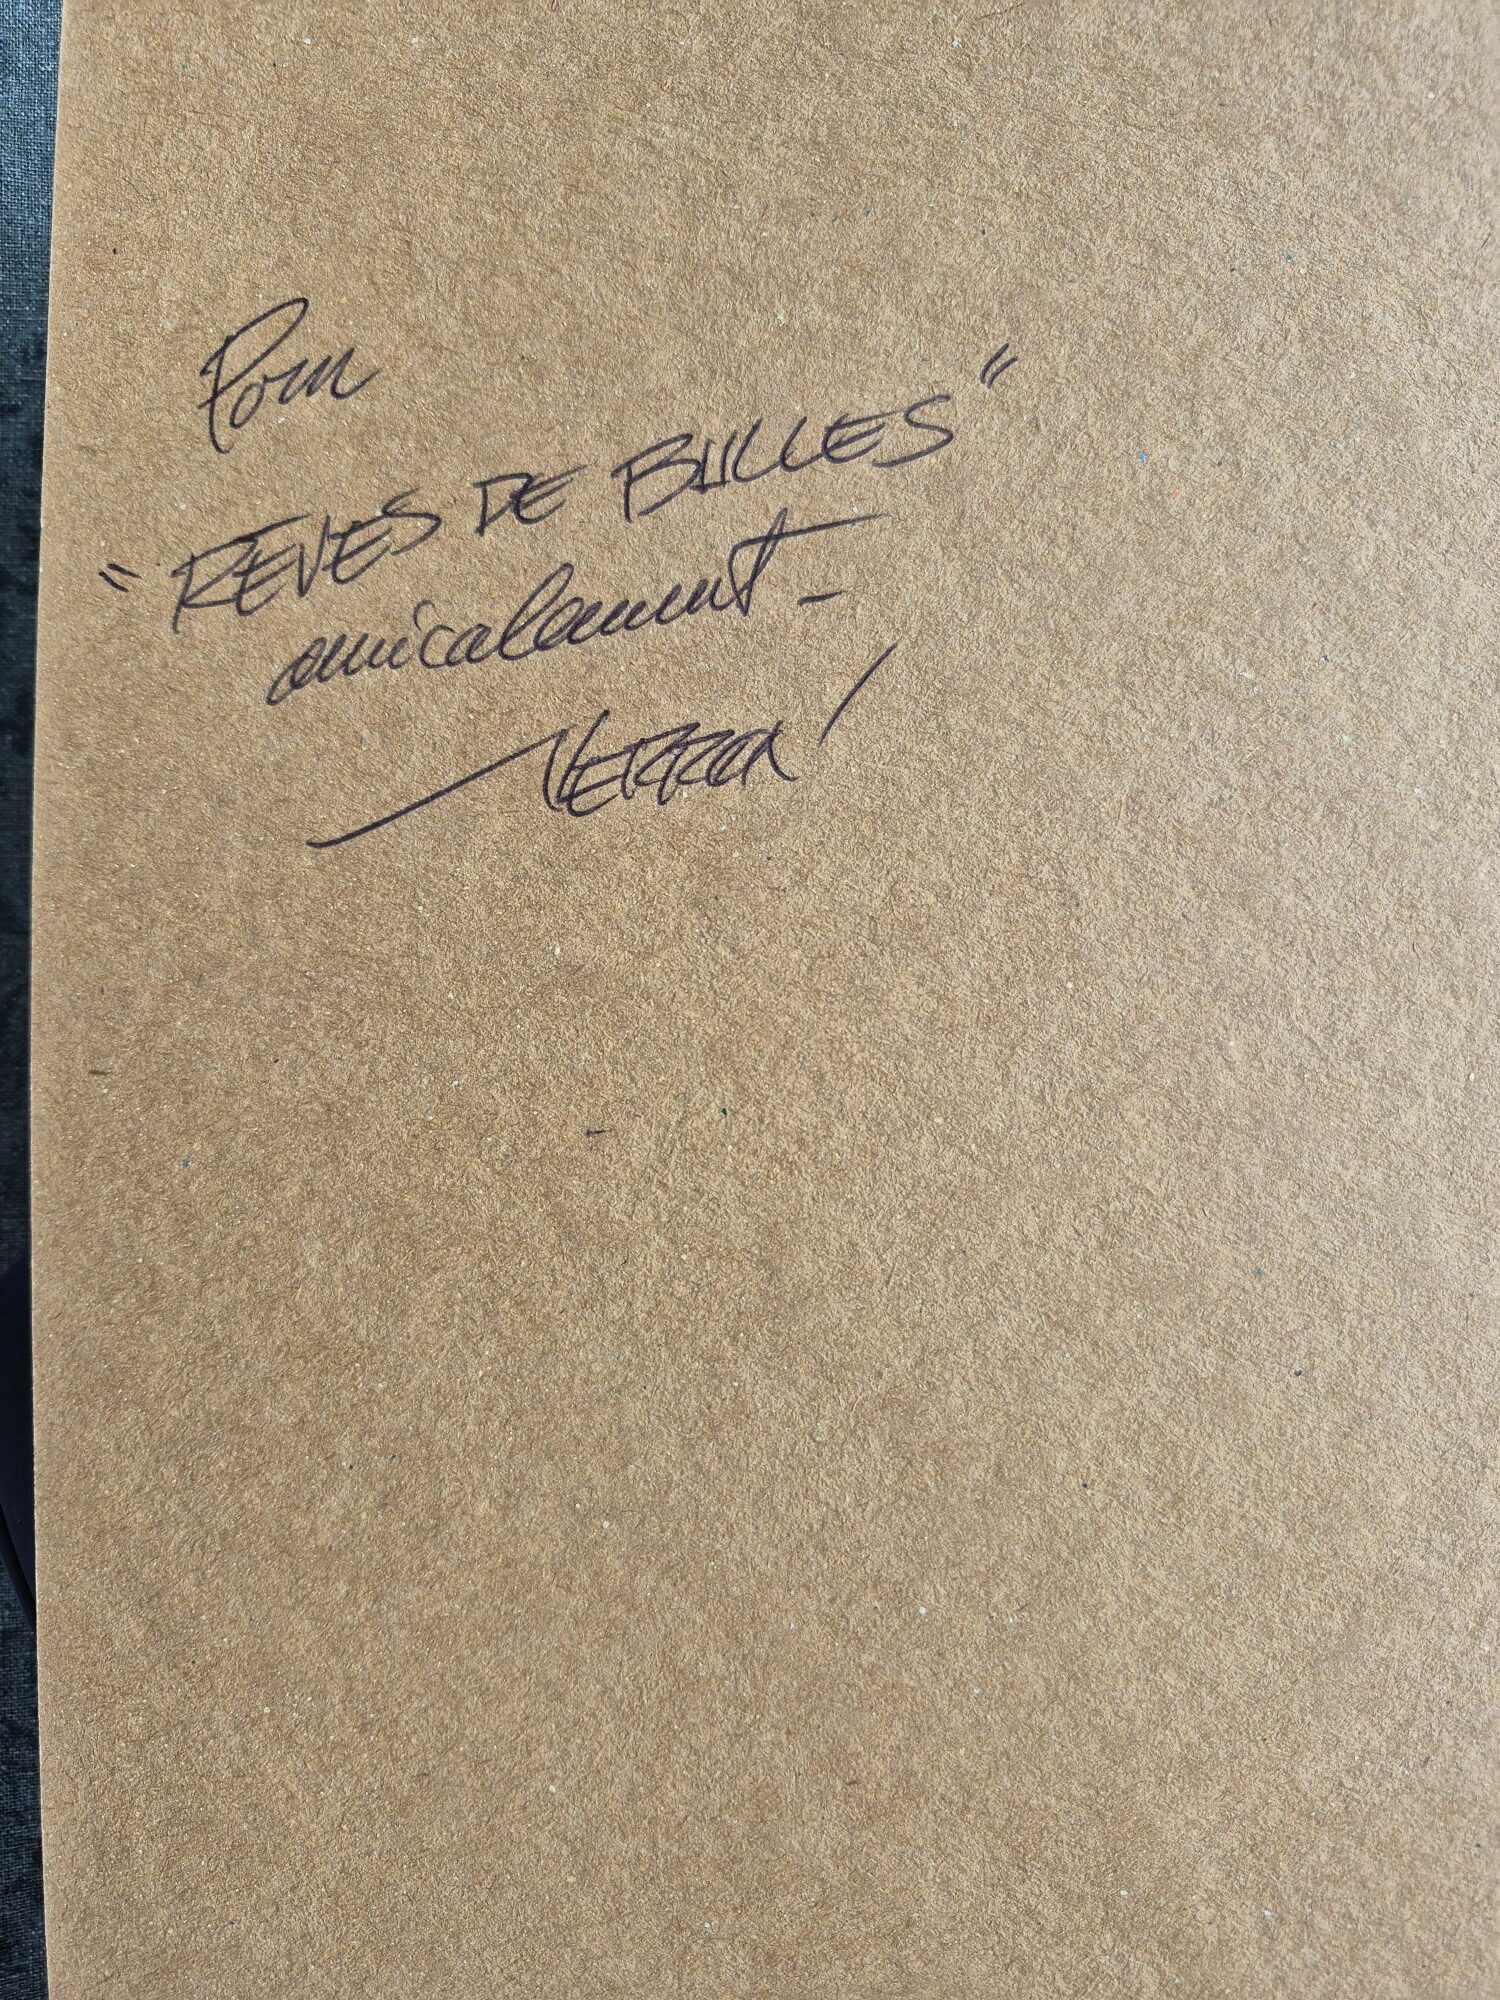 Pour
"REVES DE BULLES"
amicalement -